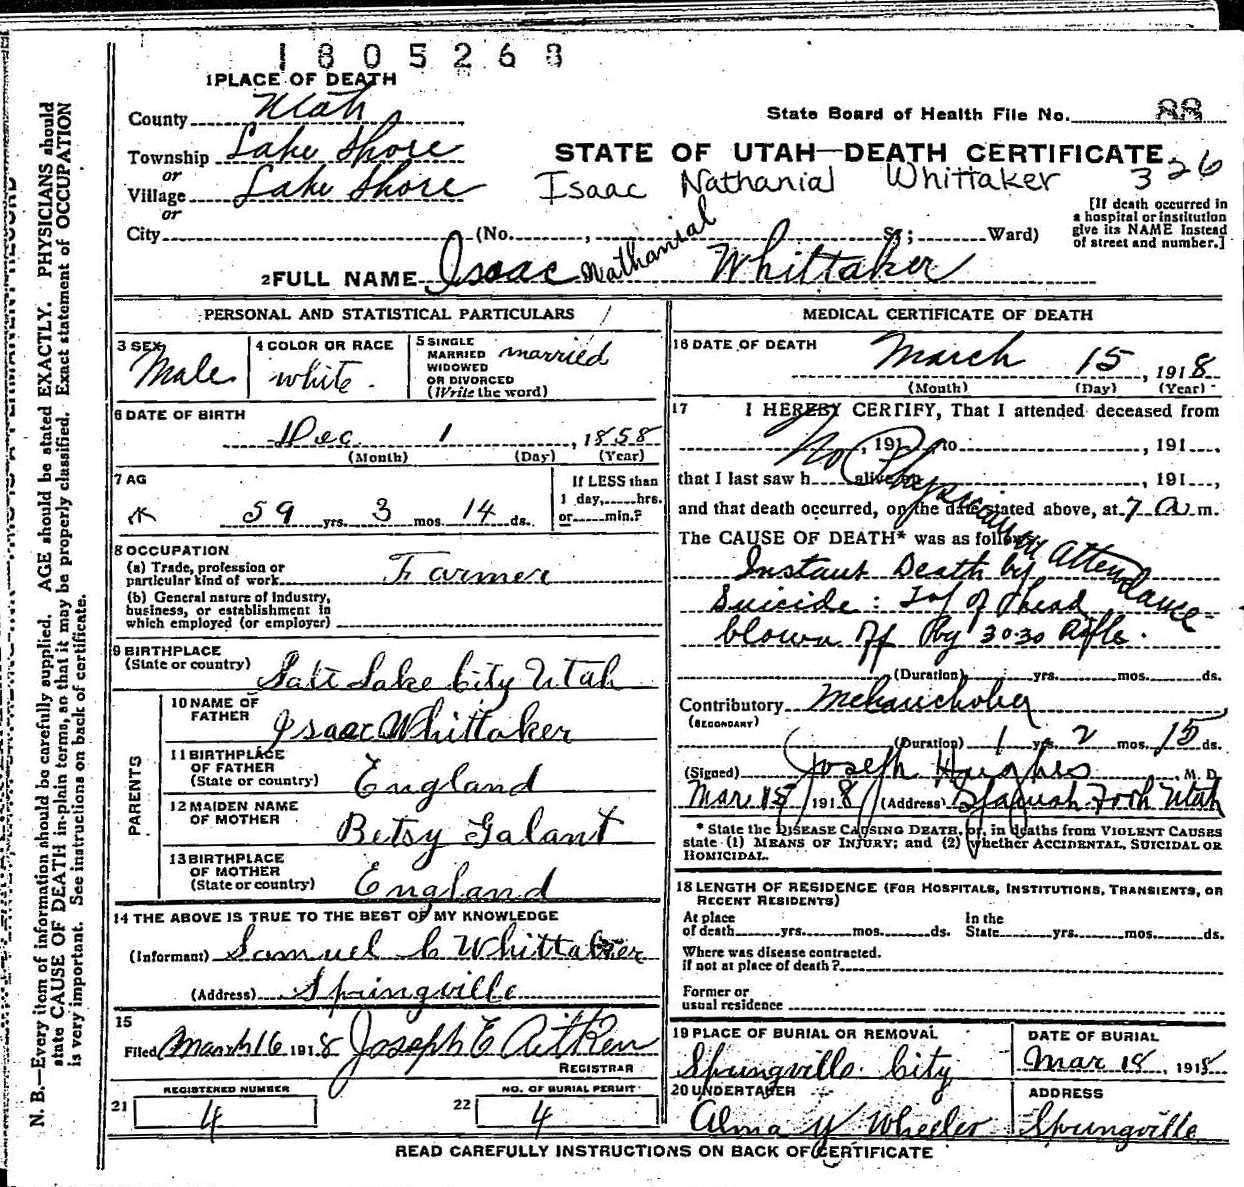 1805268
1 PLACE OF DEATH
County Utah
State Board of Health File No. 88
Township Lake Shore
or
Village Lake Shore
or
STATE OF UTAH—DEATH CERTIFICATE
Isaac Nathanial Whittaker 326
City (No. , St; Ward)
[If death occurred in
a hospital or institution
give its NAME instead
of street and number.]
2 FULL NAME Isaac Nathanial Whittaker
PERSONAL AND STATISTICAL PARTICULARS
3 SEX Male
4 COLOR OR RACE white.
5 SINGLE
MARRIED
WIDOWED
OR DIVORCED
(Write the word) married
6 DATE OF BIRTH
Dec 1, 1858
(Month) (Day) (Year)
7 AG
59 yrs. 3 mos. 14 ds.
If LESS than
1 day, hrs.
or min.?
8 OCCUPATION
(a) Trade, profession or
particular kind of work Farmer
(b) General nature of industry,
business, or establishment in
which employed (or employer)
9 BIRTHPLACE
(State or country) Salt Lake City Utah
PARENTS
10 NAME OF
FATHER Isaac Whittaker
11 BIRTHPLACE
OF FATHER
(State or country) England
12 MAIDEN NAME
OF MOTHER Betsy Galant
13 BIRTHPLACE
OF MOTHER
(State or country) England
14 THE ABOVE IS TRUE TO THE BEST OF MY KNOWLEDGE
(Informant) Samuel C Whittaker
(Address) Springville
15
Filed March 16 1918 Joseph E Aitken
REGISTRAR
REGISTERED NUMBER
21 4
NO. OF BURIAL PERMIT
22 4
MEDICAL CERTIFICATE OF DEATH
16 DATE OF DEATH
March 15, 1918
(Month) (Day) (Year)
17 I HEREBY CERTIFY, That I attended deceased from
, 191 , to , 191 ,
No Physician in Attendance
that I last saw h alive on , 191 ,
and that death occurred, on the date stated above, at 7 a m.
The CAUSE OF DEATH* was as follows:
Instant Death by
Suicide: Top of head
blown off by 30-30 Rifle.
(Duration) yrs. mos. ds.
Contributory
(SECONDARY)
(Duration) 1 yrs. 2 mos. 15 ds.
(Signed) Joseph Hughes M. D.
Mar 18, 1918 (Address) Spanish Fork Utah
* State the DISEASE CAUSING DEATH, or, in deaths from VIOLENT CAUSES
state (1) MEANS OF INJURY; and (2) whether ACCIDENTAL, SUICIDAL OR
HOMICIDAL.
18 LENGTH OF RESIDENCE (FOR HOSPITALS, INSTITUTIONS, TRANSIENTS, OR
RECENT RESIDENTS)
At place
of death yrs. mos. ds.
In the
State yrs. mos. ds.
Where was disease contracted.
if not at place of death?
Former or
usual residence
19 PLACE OF BURIAL OR REMOVAL
Springville City
DATE OF BURIAL
Mar 18, 1918
20 UNDERTAKER
Alma W Wheeler
ADDRESS
Springville
READ CAREFULLY INSTRUCTIONS ON BACK OF CERTIFICATE
N. B.—Every item of information should be carefully supplied. AGE should be stated EXACTLY. PHYSICIANS should
state CAUSE OF DEATH in plain terms, so that it may be properly classified. Exact statement of OCCUPATION
is very important. See instructions on back of certificate.